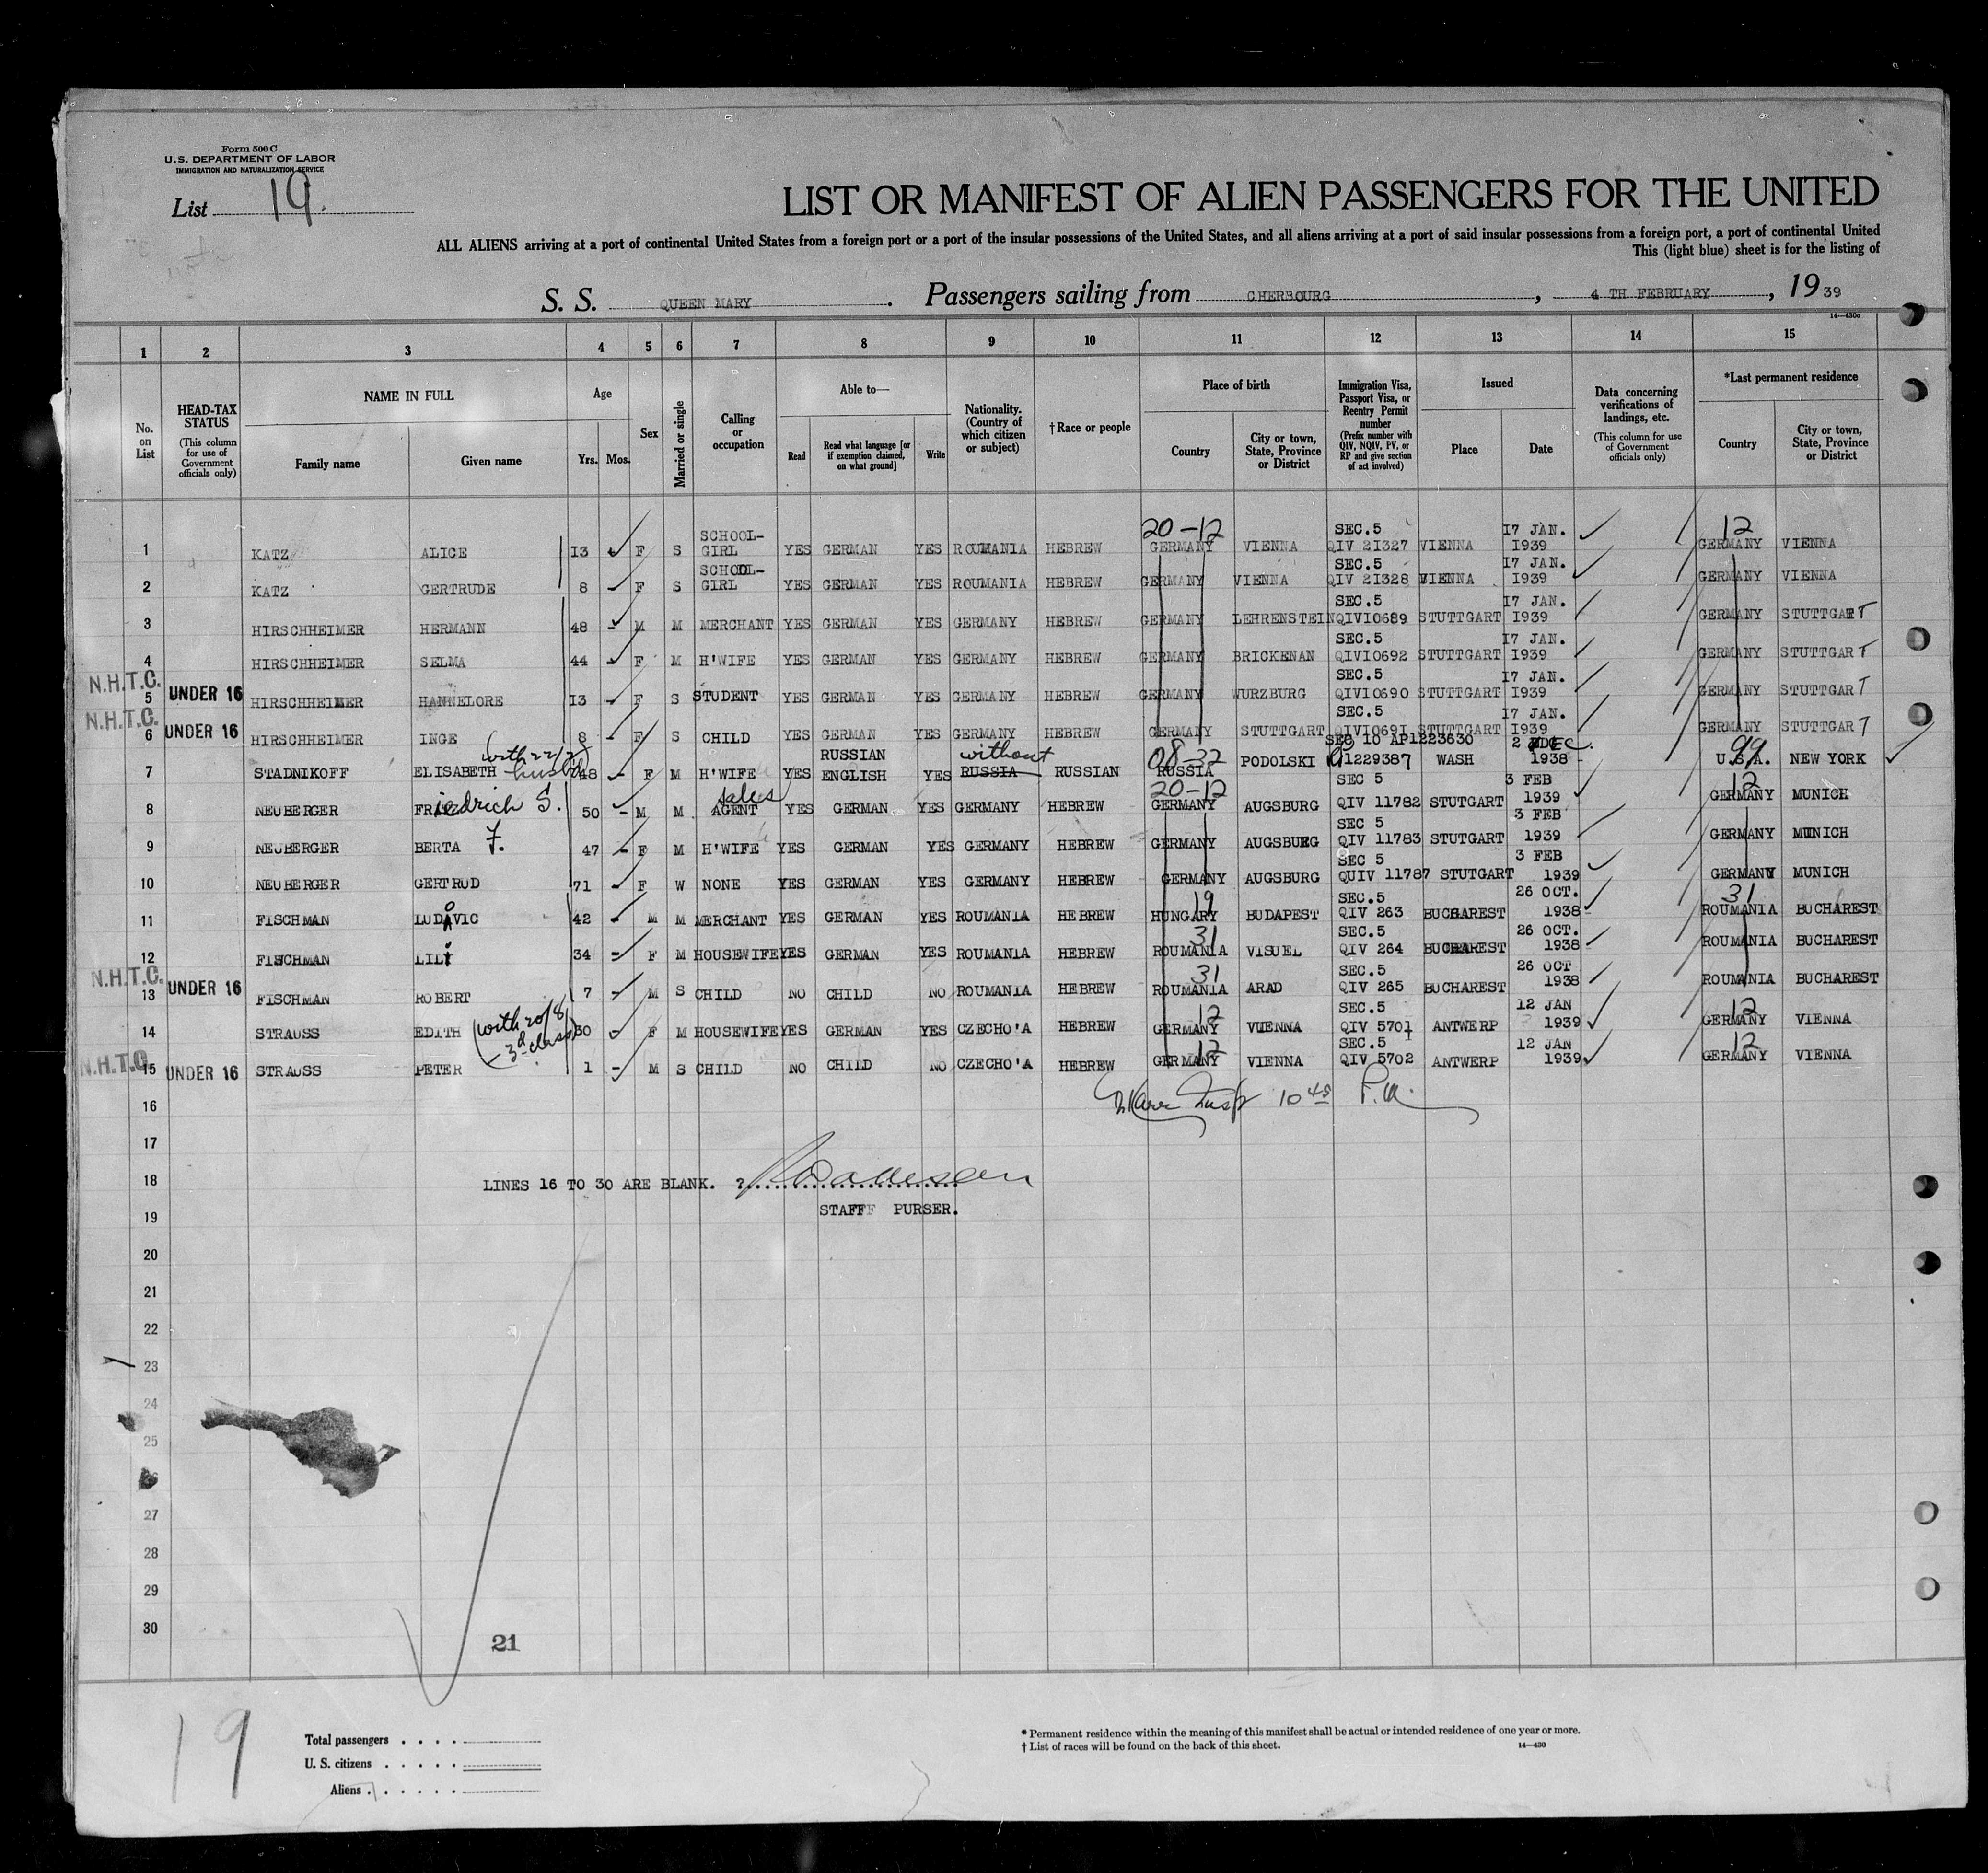 Form 500 C
U.S. DEPARTMENT OF LABOR
IMMIGRATION AND NATURALIZATION SERVICE
List 19.
LIST OR MANIFEST OF ALIEN PASSENGERS FOR THE UNITED
ALL ALIENS arriving at a port of continental United States from a foreign port or a port of the insular possessions of the United States, and all aliens arriving at a port of said insular possessions from a foreign port, a port of continental United
This (light blue) sheet is for the listing of
S. S. QUEEN MARY. Passengers sailing from CHERBOURG, 4 TH FEBRUARY, 19 39
14—430a
1 2 3 4 5 6 7 8 9 10 11 12 13 14 15
No. on List
HEAD-TAX STATUS (This column for use of Government officials only)
NAME IN FULL
Family name
Given name
Age
Yrs. Mos.
Sex
Married or single
Calling or occupation
Able to—
Read
Read what language [or if exemption claimed, on what ground]
Write
Nationality. (Country of which citizen or subject)
†Race or people
Place of birth
Country
City or town, State, Province or District
Immigration Visa, Passport Visa, or Reentry Permit number (Prefix number with QIV, NQIV, PV, or RP and give section of act involved)
Issued
Place
Date
Data concerning verifications of landings, etc. (This column for use of Government officials only)
*Last permanent residence
Country
City or town, State, Province or District
20-12 SEC.5 17 JAN. 12
1 KATZ ALICE 13 F S SCHOOL-GIRL YES GERMAN YES ROUMANIA HEBREW GERMANY VIENNA QIV 21327 VIENNA 1939 GERMANY VIENNA
SEC.5 17 JAN.
2 KATZ GERTRUDE 8 - F S SCHOOL-GIRL YES GERMAN YES ROUMANIA HEBREW GERMANY VIENNA QIV 21328 VIENNA 1939 GERMANY VIENNA
SEC.5 17 JAN.
3 HIRSCHHEIMER HERMANN 48 - M M MERCHANT YES GERMAN YES GERMANY HEBREW GERMANY LEHRENSTEIN QIV10689 STUTTGART 1939 GERMANY STUTTGART
SEC.5 17 JAN.
4 HIRSCHHEIMER SELMA 44 - F M H'WIFE YES GERMAN YES GERMANY HEBREW GERMANY BRICKENAN QIV10692 STUTTGART 1939 GERMANY STUTTGART
N.H.T.C. SEC.5 17 JAN.
5 UNDER 16 HIRSCHHEIMER HANNELORE 13 - F S STUDENT YES GERMAN YES GERMANY HEBREW GERMANY WURZBURG QIV10690 STUTTGART 1939 GERMANY STUTTGART
N.H.T.C. SEC.5 17 JAN.
6 UNDER 16 HIRSCHHEIMER INGE 8 - F S CHILD YES GERMAN YES GERMANY HEBREW GERMANY STUTTGART QIV10691 STUTTGART 1939 GERMANY STUTTGART
RUSSIAN without 08-32 SEC 10 AP1223630 2 DEC. 99
7 STADNIKOFF ELISABETH 48 - F M H'WIFE YES ENGLISH YES RUSSIA RUSSIAN RUSSIA PODOLSKI 1229387 WASH 1938 - U.S.A. NEW YORK
sales 20-12 SEC 5 3 FEB 12
8 NEUBERGER FRiedrich S. 50 - M M AGENT YES GERMAN YES GERMANY HEBREW GERMANY AUGSBURG QIV 11782 STUTGART 1939 GERMANY MUNICH
SEC 5 3 FEB
9 NEUBERGER BERTA F. 47 - F M H'WIFE YES GERMAN YES GERMANY HEBREW GERMANY AUGSBURG QIV 11783 STUTGART 1939 GERMANY MUNICH
SEC 5 3 FEB
10 NEUBERGER GERTRUD 71 - F W NONE YES GERMAN YES GERMANY HEBREW GERMANY AUGSBURG QUIV 11787 STUTGART 1939 GERMANY MUNICH
19 SEC.5 26 OCT. 31
11 FISCHMAN LUDOVIC 42 - M M MERCHANT YES GERMAN YES ROUMANIA HEBREW HUNGARY BUDAPEST QIV 263 BUCHAREST 1938 ROUMANIA BUCHAREST
31 SEC.5 26 OCT.
12 FISCHMAN LILI 34 - F M HOUSEWIFE YES GERMAN YES ROUMANIA HEBREW ROUMANIA VISUEL QIV 264 BUCHAREST 1938 ROUMANIA BUCHAREST
N.H.T.C. 31 SEC.5 26 OCT
13 UNDER 16 FISCHMAN ROBERT 7 - M S CHILD NO CHILD NO ROUMANIA HEBREW ROUMANIA ARAD QIV 265 BUCHAREST 1938 ROUMANIA BUCHAREST
12 SEC.5 12 JAN 12
14 STRAUSS EDITH (with 20/8 3d class) 30 - F M HOUSEWIFE YES GERMAN YES CZECHO'A HEBREW GERMANY VIENNA QIV 5701 ANTWERP 1939 GERMANY VIENNA
N.H.T.C. 12 SEC.5 12 JAN 12
15 UNDER 16 STRAUSS PETER 1 - M S CHILD NO CHILD NO CZECHO'A HEBREW GERMANY VIENNA QIV 5702 ANTWERP 1939 GERMANY VIENNA
16 Insp 10 45 P.M.
17
18 LINES 16 TO 30 ARE BLANK. ?
19 STAFFF PURSER.
20
21
22
23
24
25
26
27
28
29
30
21
19
Total passengers
U. S. citizens
Aliens
* Permanent residence within the meaning of this manifest shall be actual or intended residence of one year or more.
† List of races will be found on the back of this sheet.
14—430